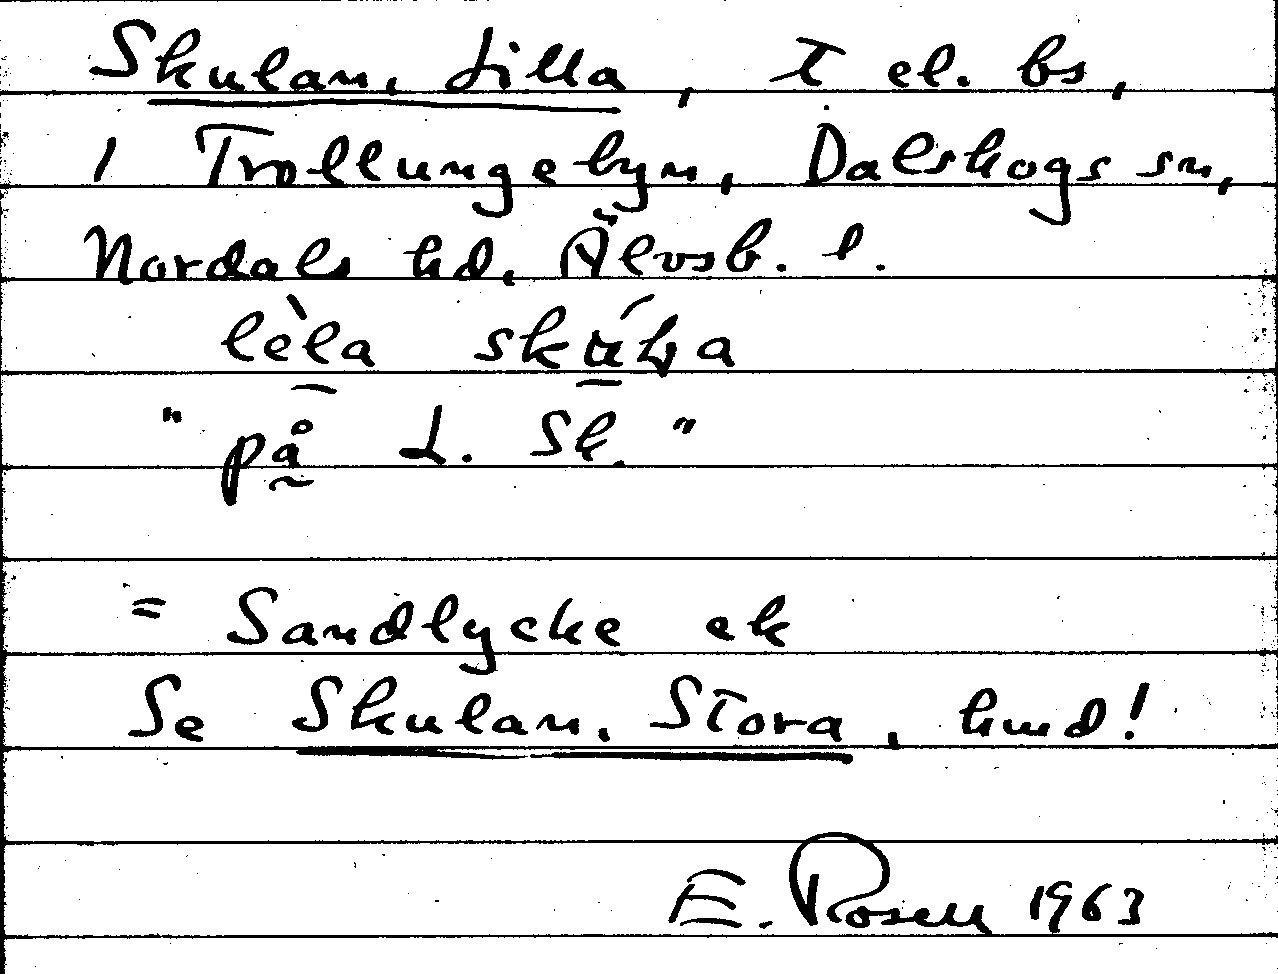 Skulan, Lilla, t el. bs,
i Trollungebyn, Dalskogs sn,
Nordals hd, Älvsb. l.
lèla
"på L. Sk."
= Sandlycke ek
Se Skulan, Stora, hmd!
E. Rosell 1963